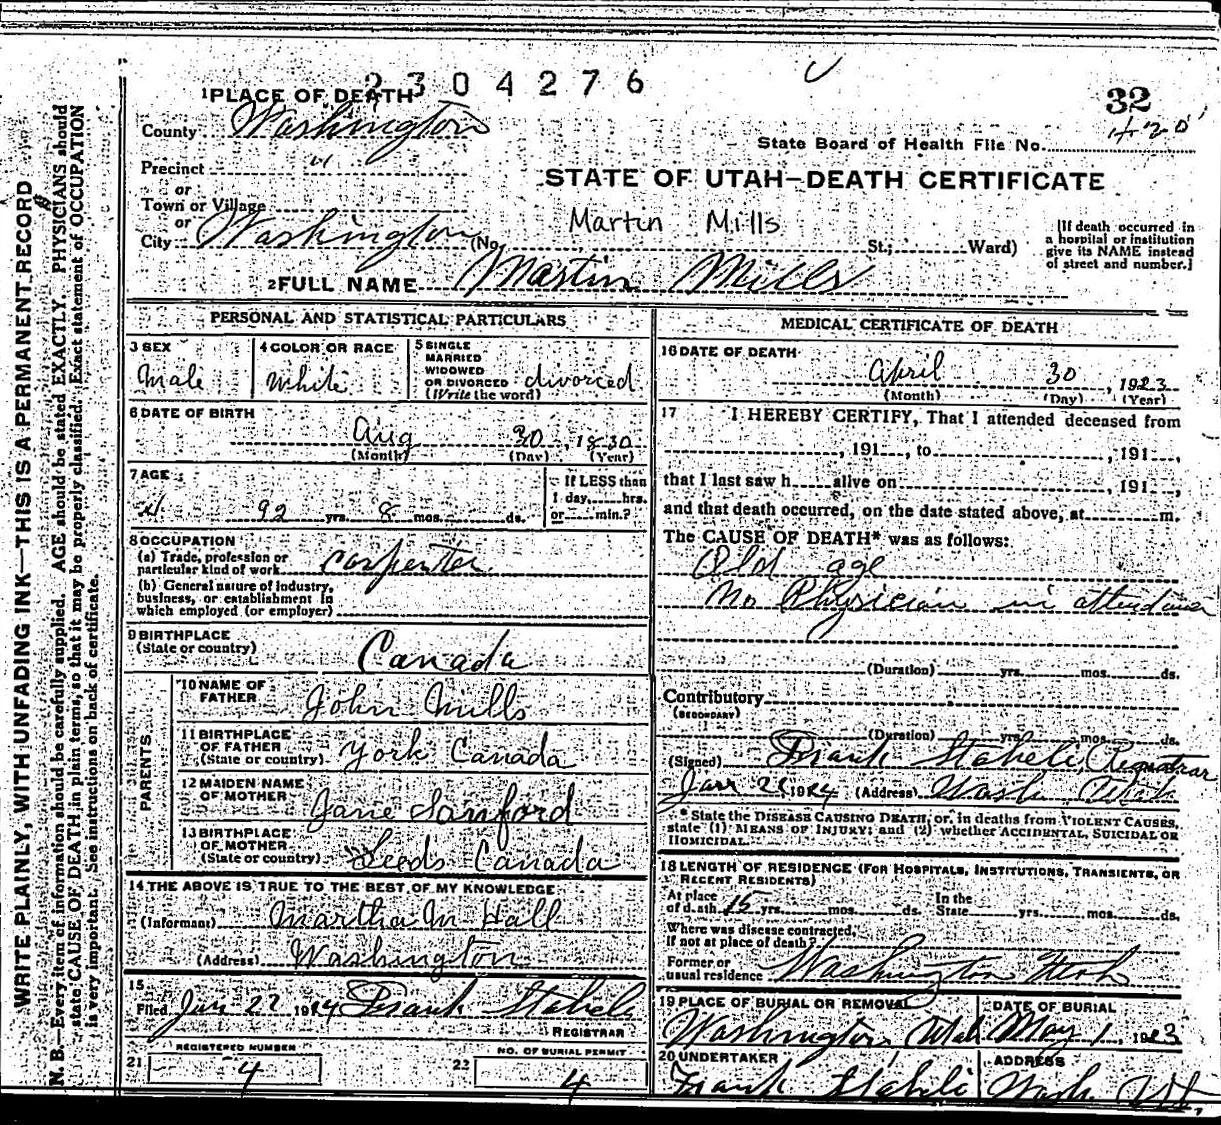 2304276
32
420
1 PLACE OF DEATH
County Washington
State Board of Health File No.
Precinct "
or
Town or Village
or
City Washington (No. St.; Ward)
STATE OF UTAH—DEATH CERTIFICATE
Martin Mills
[If death occurred in
a hospital or institution
give its NAME instead
of street and number.]
2 FULL NAME Martin Mills
PERSONAL AND STATISTICAL PARTICULARS
3 SEX
Male
4 COLOR OR RACE
White
5 SINGLE
MARRIED
WIDOWED
OR DIVORCED divorced
(Write the word)
6 DATE OF BIRTH
Aug 30, 1830
(Month) (Day) (Year)
7 AGE
92 yrs. 8 mos. ds.
If LESS than
1 day, hrs.
or min.?
8 OCCUPATION
(a) Trade, profession or
particular kind of work carpenter
(b) General nature of industry,
business, or establishment in
which employed (or employer)
9 BIRTHPLACE
(State or country) Canada
PARENTS
10 NAME OF
FATHER John Mills
11 BIRTHPLACE
OF FATHER
(State or country) York Canada
12 MAIDEN NAME
OF MOTHER Jane Sanford
13 BIRTHPLACE
OF MOTHER
(State or country) Leeds Canada
14 THE ABOVE IS TRUE TO THE BEST OF MY KNOWLEDGE
(Informant) Martha M Hall
(Address) Washington
15
Filed Jan 22 1924 Frank Staheli
REGISTRAR
21 REGISTERED NUMBER
4
22 NO. OF BURIAL PERMIT
4
MEDICAL CERTIFICATE OF DEATH
16 DATE OF DEATH
April 30, 1923
(Month) (Day) (Year)
17 I HEREBY CERTIFY, That I attended deceased from
, 191 , to , 191 ,
that I last saw h alive on , 191 ,
and that death occurred, on the date stated above, at m.
The CAUSE OF DEATH* was as follows:
Old age
No Physician in attendance
(Duration) yrs. mos. ds.
Contributory
(SECONDARY)
(Duration) yrs. mos. ds.
(Signed) Frank Staheli, Registrar
Jan 22 1924 (Address) Wash Utah
* State the DISEASE CAUSING DEATH, or, in deaths from VIOLENT CAUSES,
state (1) MEANS OF INJURY; and (2) whether ACCIDENTAL, SUICIDAL OR
HOMICIDAL.
18 LENGTH OF RESIDENCE (FOR HOSPITALS, INSTITUTIONS, TRANSIENTS, OR
RECENT RESIDENTS)
At place In the
of death 15 yrs. mos. ds. State yrs. mos. ds.
Where was disease contracted,
if not at place of death?
Former or
usual residence Washington Utah
19 PLACE OF BURIAL OR REMOVAL
Washington, Utah
DATE OF BURIAL
May 1, 1923
20 UNDERTAKER
Frank Staheli
ADDRESS
Wash. Ut.
WRITE PLAINLY, WITH UNFADING INK—THIS IS A PERMANENT RECORD
N. B.—Every item of information should be carefully supplied. AGE should be stated EXACTLY. PHYSICIANS should
state CAUSE OF DEATH in plain terms, so that it may be properly classified. Exact statement of OCCUPATION
is very important. See instructions on back of certificate.